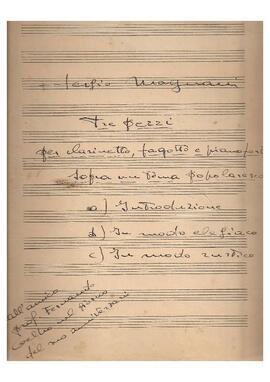 Sergio Magnani
Tre pezzi
per clarinetto, fagotto e pianofort
sopra un tema popolaresco
a) Introduzione
b) In modo elegiaco
c) In modo rustico
all'amico
prof. Fernando
nel giorno
del suo anniversario